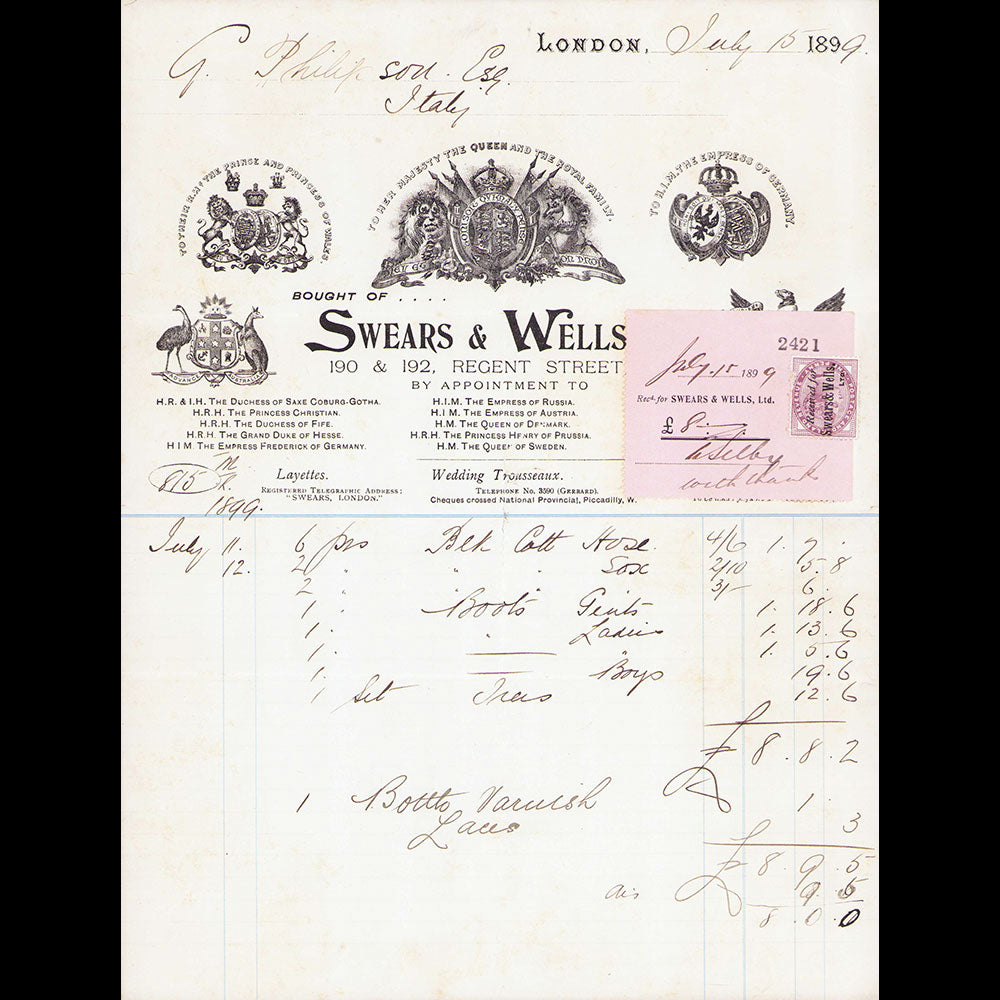 LONDON, July 15 1899.
G. Philipson. Esq.
Italy
TO THEIR R.H.s THE PRINCE AND PRINCESS OF WALES
TO HER MAJESTY THE QUEEN AND THE ROYAL FAMILY.
TO H.I.M. THE EMPRESS OF GERMANY.
ADVANCE AUSTRALIA
BOUGHT OF ....
SWEARS & WELLS
190 & 192, REGENT STREET
BY APPOINTMENT TO
H.R. & I.H. THE DUCHESS OF SAXE COBURG-GOTHA.
H.R.H. THE PRINCESS CHRISTIAN.
H.R.H. THE DUCHESS OF FIFE.
H.R.H. THE GRAND DUKE OF HESSE.
H I M THE EMPRESS FREDERICK OF GERMANY.
H.I.M. THE EMPRESS OF RUSSIA.
H.I M. THE EMPRESS OF AUSTRIA.
H.M. THE QUEEN OF DENMARK.
H.R.H. THE PRINCESS HENRY OF PRUSSIA.
H.M. THE QUEEN OF SWEDEN.
2421
July. 15 1899
Recd. for SWEARS & WELLS, Ltd.
£ 8. –. –
with thanks
Received for
Swears & Wells,
LTD
815
Layettes.
Wedding Trousseaux.
REGISTERED TELEGRAPHIC ADDRESS:
"SWEARS, LONDON."
TELEPHONE No. 3590 (GERRARD).
Cheques crossed National Provincial, Piccadilly, W.
1899.
July 11. 6 prs Blk Cott Hose. 4/6 1. 7. .
12. 2 " " " Sox 2/10 5. 8
2 " 3/- 6.
1 " Boots Gents 1. 18. 6
1. " Ladies 1. 13. 6
1. " 1. 5. 6
1. Boys 19. 6
1 Set Trees 12. 6
£ 8. 8. 2
1 Bottle Varnish 1.
Laces 3
£ 8. 9. 5
dis 9. 5
8. 0. 0